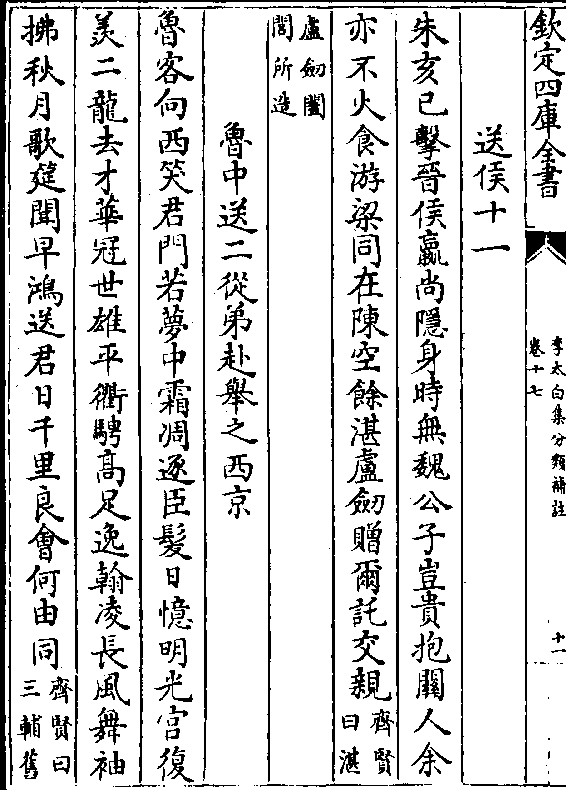 欽定四庫全書
李太白集分類補註
卷十七
十一
送侯十一
朱亥已擊晉侯嬴尚隱身時無魏公子豈貴抱關人余
亦不火食游梁同在陳空餘湛盧劒贈爾託交親齊賢
曰湛
盧劒闔
閭所造
魯中送二從弟赴舉之西京
魯客向西笑君門若夢中霜凋逐臣髮日憶明光宮復
羨二龍去才華冠世雄平衢騁高足逸翰凌長風舞袖
拂秋月歌筵聞早鴻送君日千里良會何由同齊賢曰
三輔舊